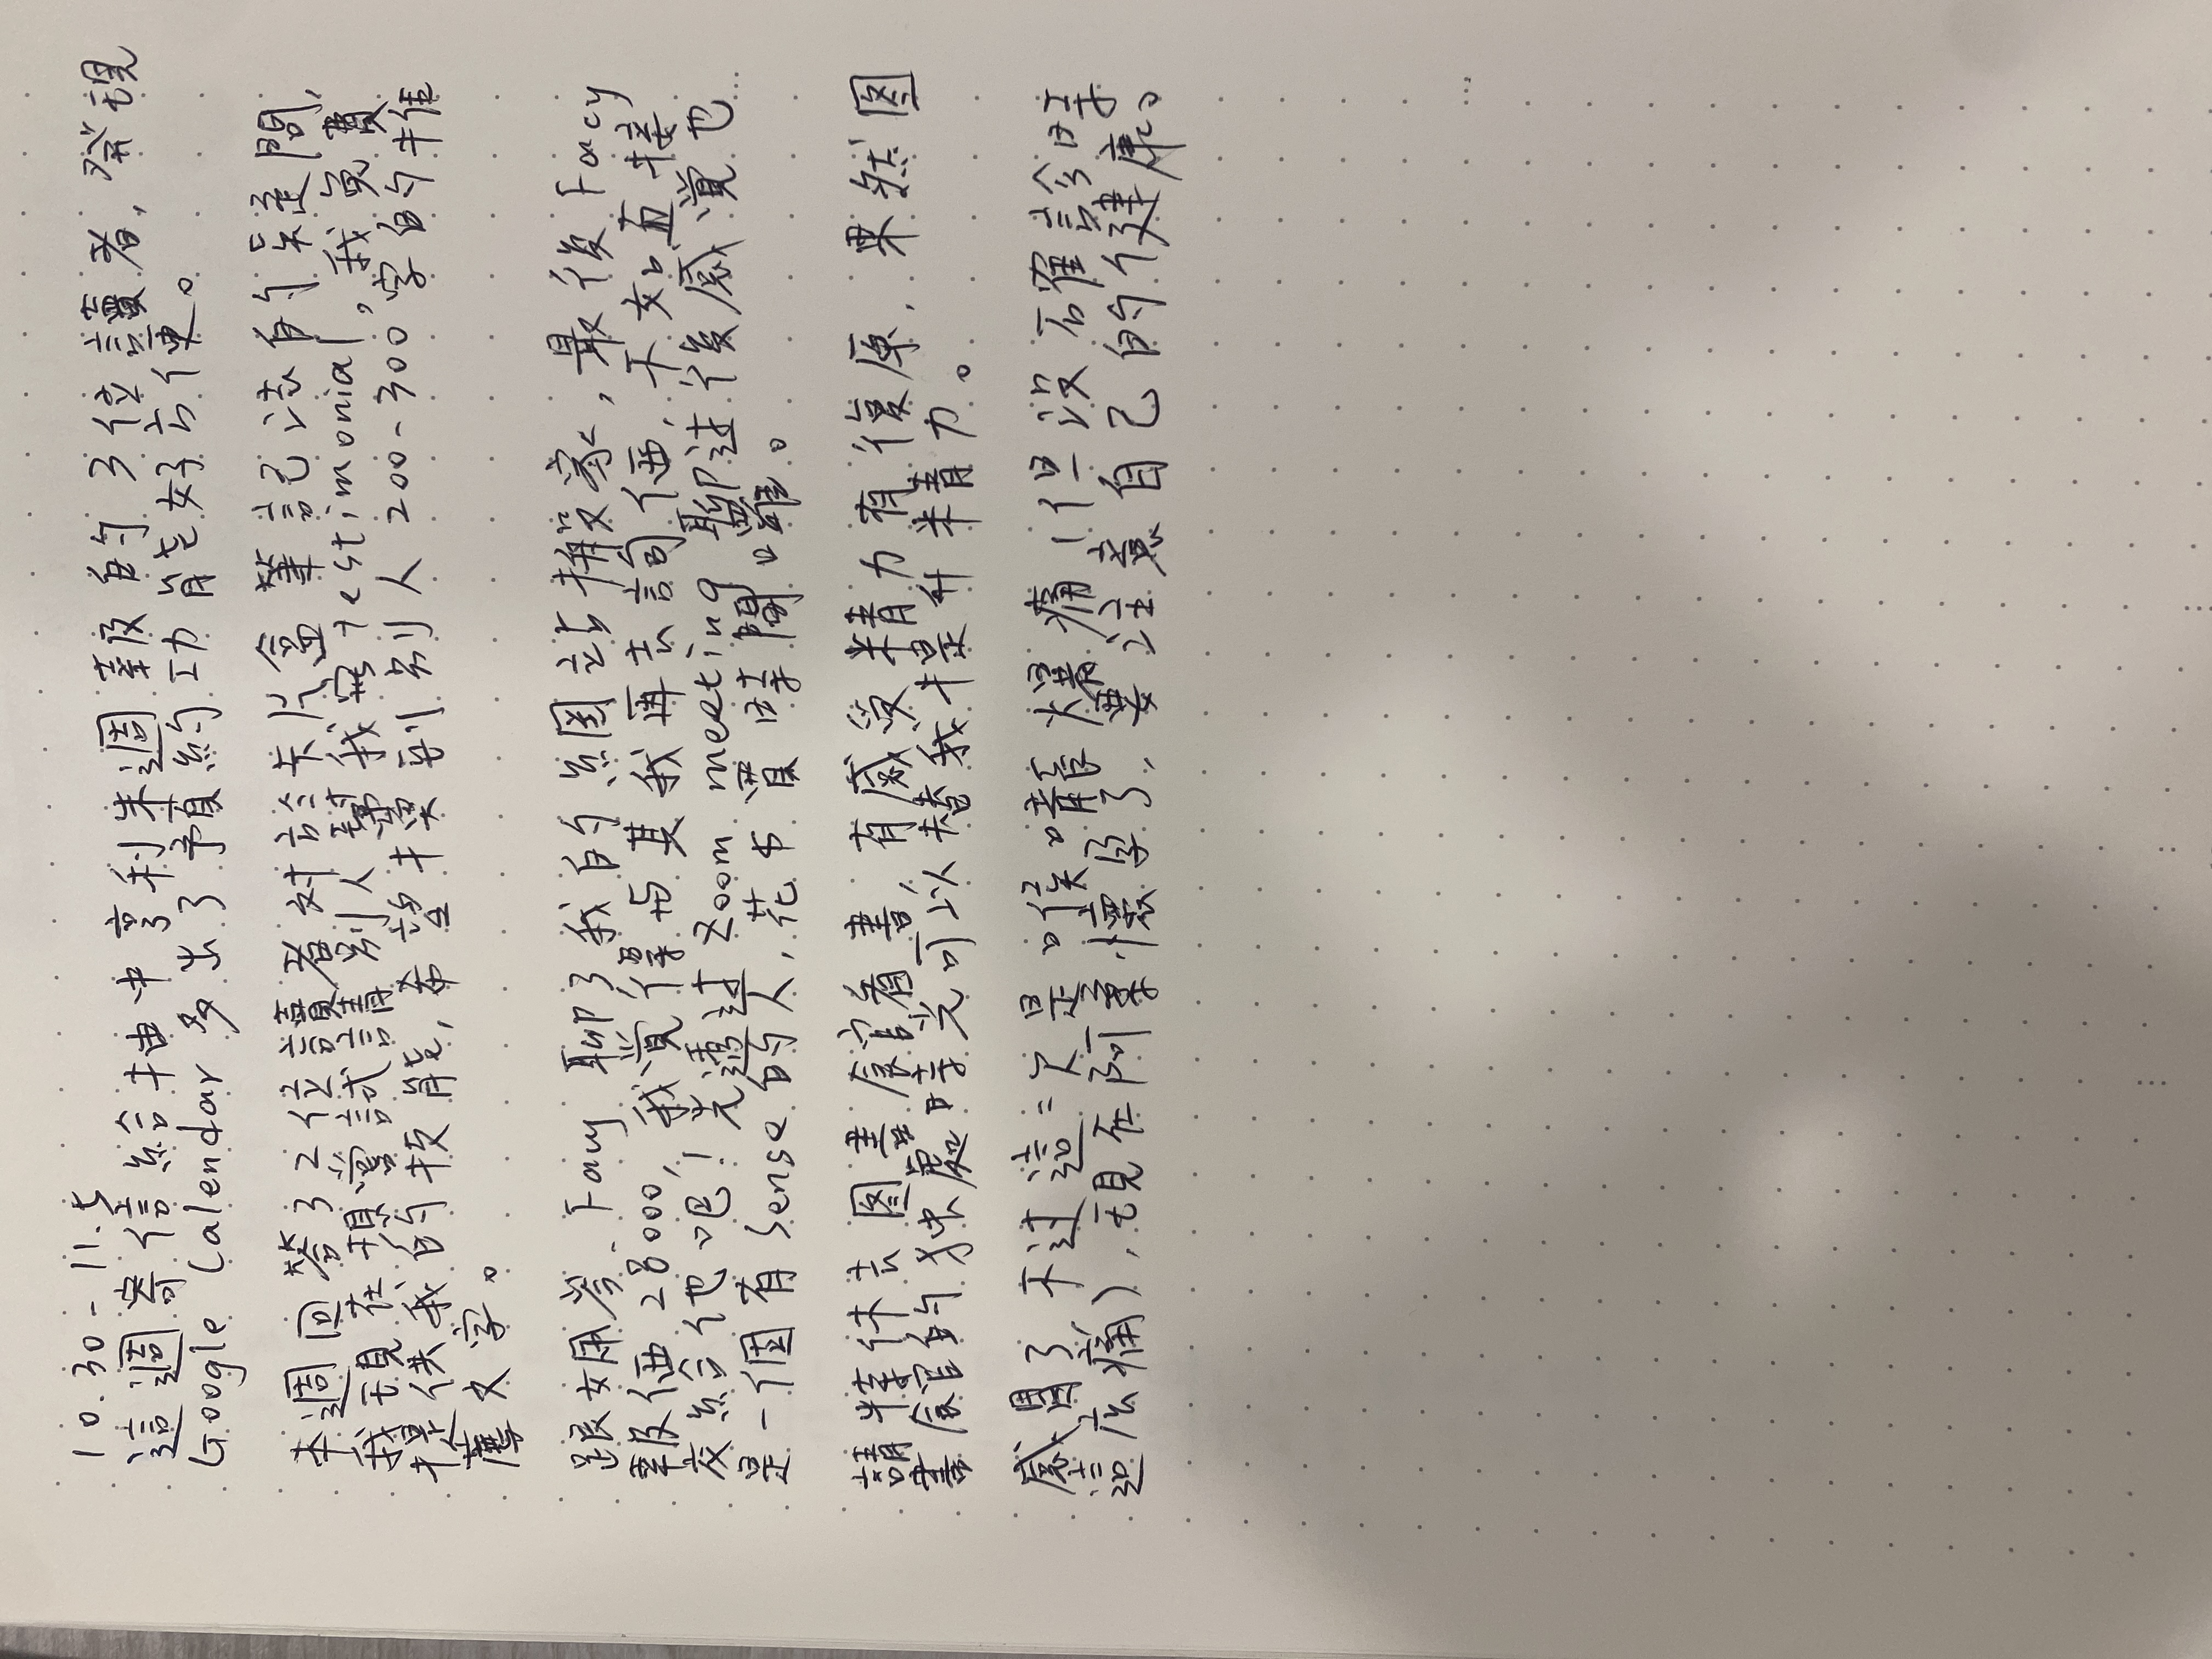 10.30-11.5
這週寄信給抽中亨利朱週報的3位讀者,發現
Google Calendar多出了預約功能好方便。
本週回答了2位讀者对於卡片盒筆記法的疑問,
我現在想嘗試請別人幫我寫testimonial,我免費
提供我的技能,希望換到別人200-300字的推
薦文字。
跟姵岑、Facy聊了我的網站搬家,最後Facy
報価28000,我覚得与其我再去詢価,不如直接
交給他吧!先透过Zoom meeting聊过後感覚也
是一個有Sense的人,花$買時間囉。
請特休去图書館看書,有感受精力有復原,果然图
書館的独處時光可以替我提升精力。
感冒了,不过這一次是喉嚨爆痛(但没確診時
這広痛),現在阿柔懷孕了,要注意自己的健康。